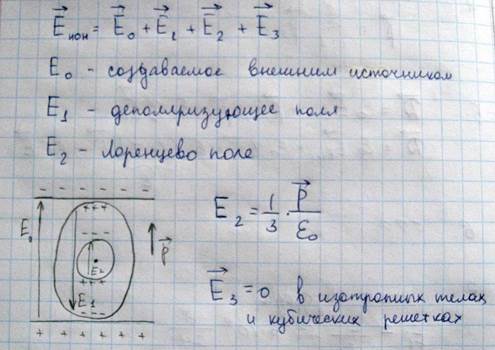 E⃗ион = E⃗₀ + E⃗₁ + E⃗₂ + E⃗₃
E₀ - создаваемое внешним источником
E₁ - деполяризующее поля
E₂ - Лоренцево поле
- - - - - -
+ + +
E₀
- - -
E₂
+ + +
E₁
- - -
P⃗
+ + + + + +
E₂ = 1/3 · P⃗/ε₀
E⃗₃ = 0 в изотропных телах
и кубических решетках